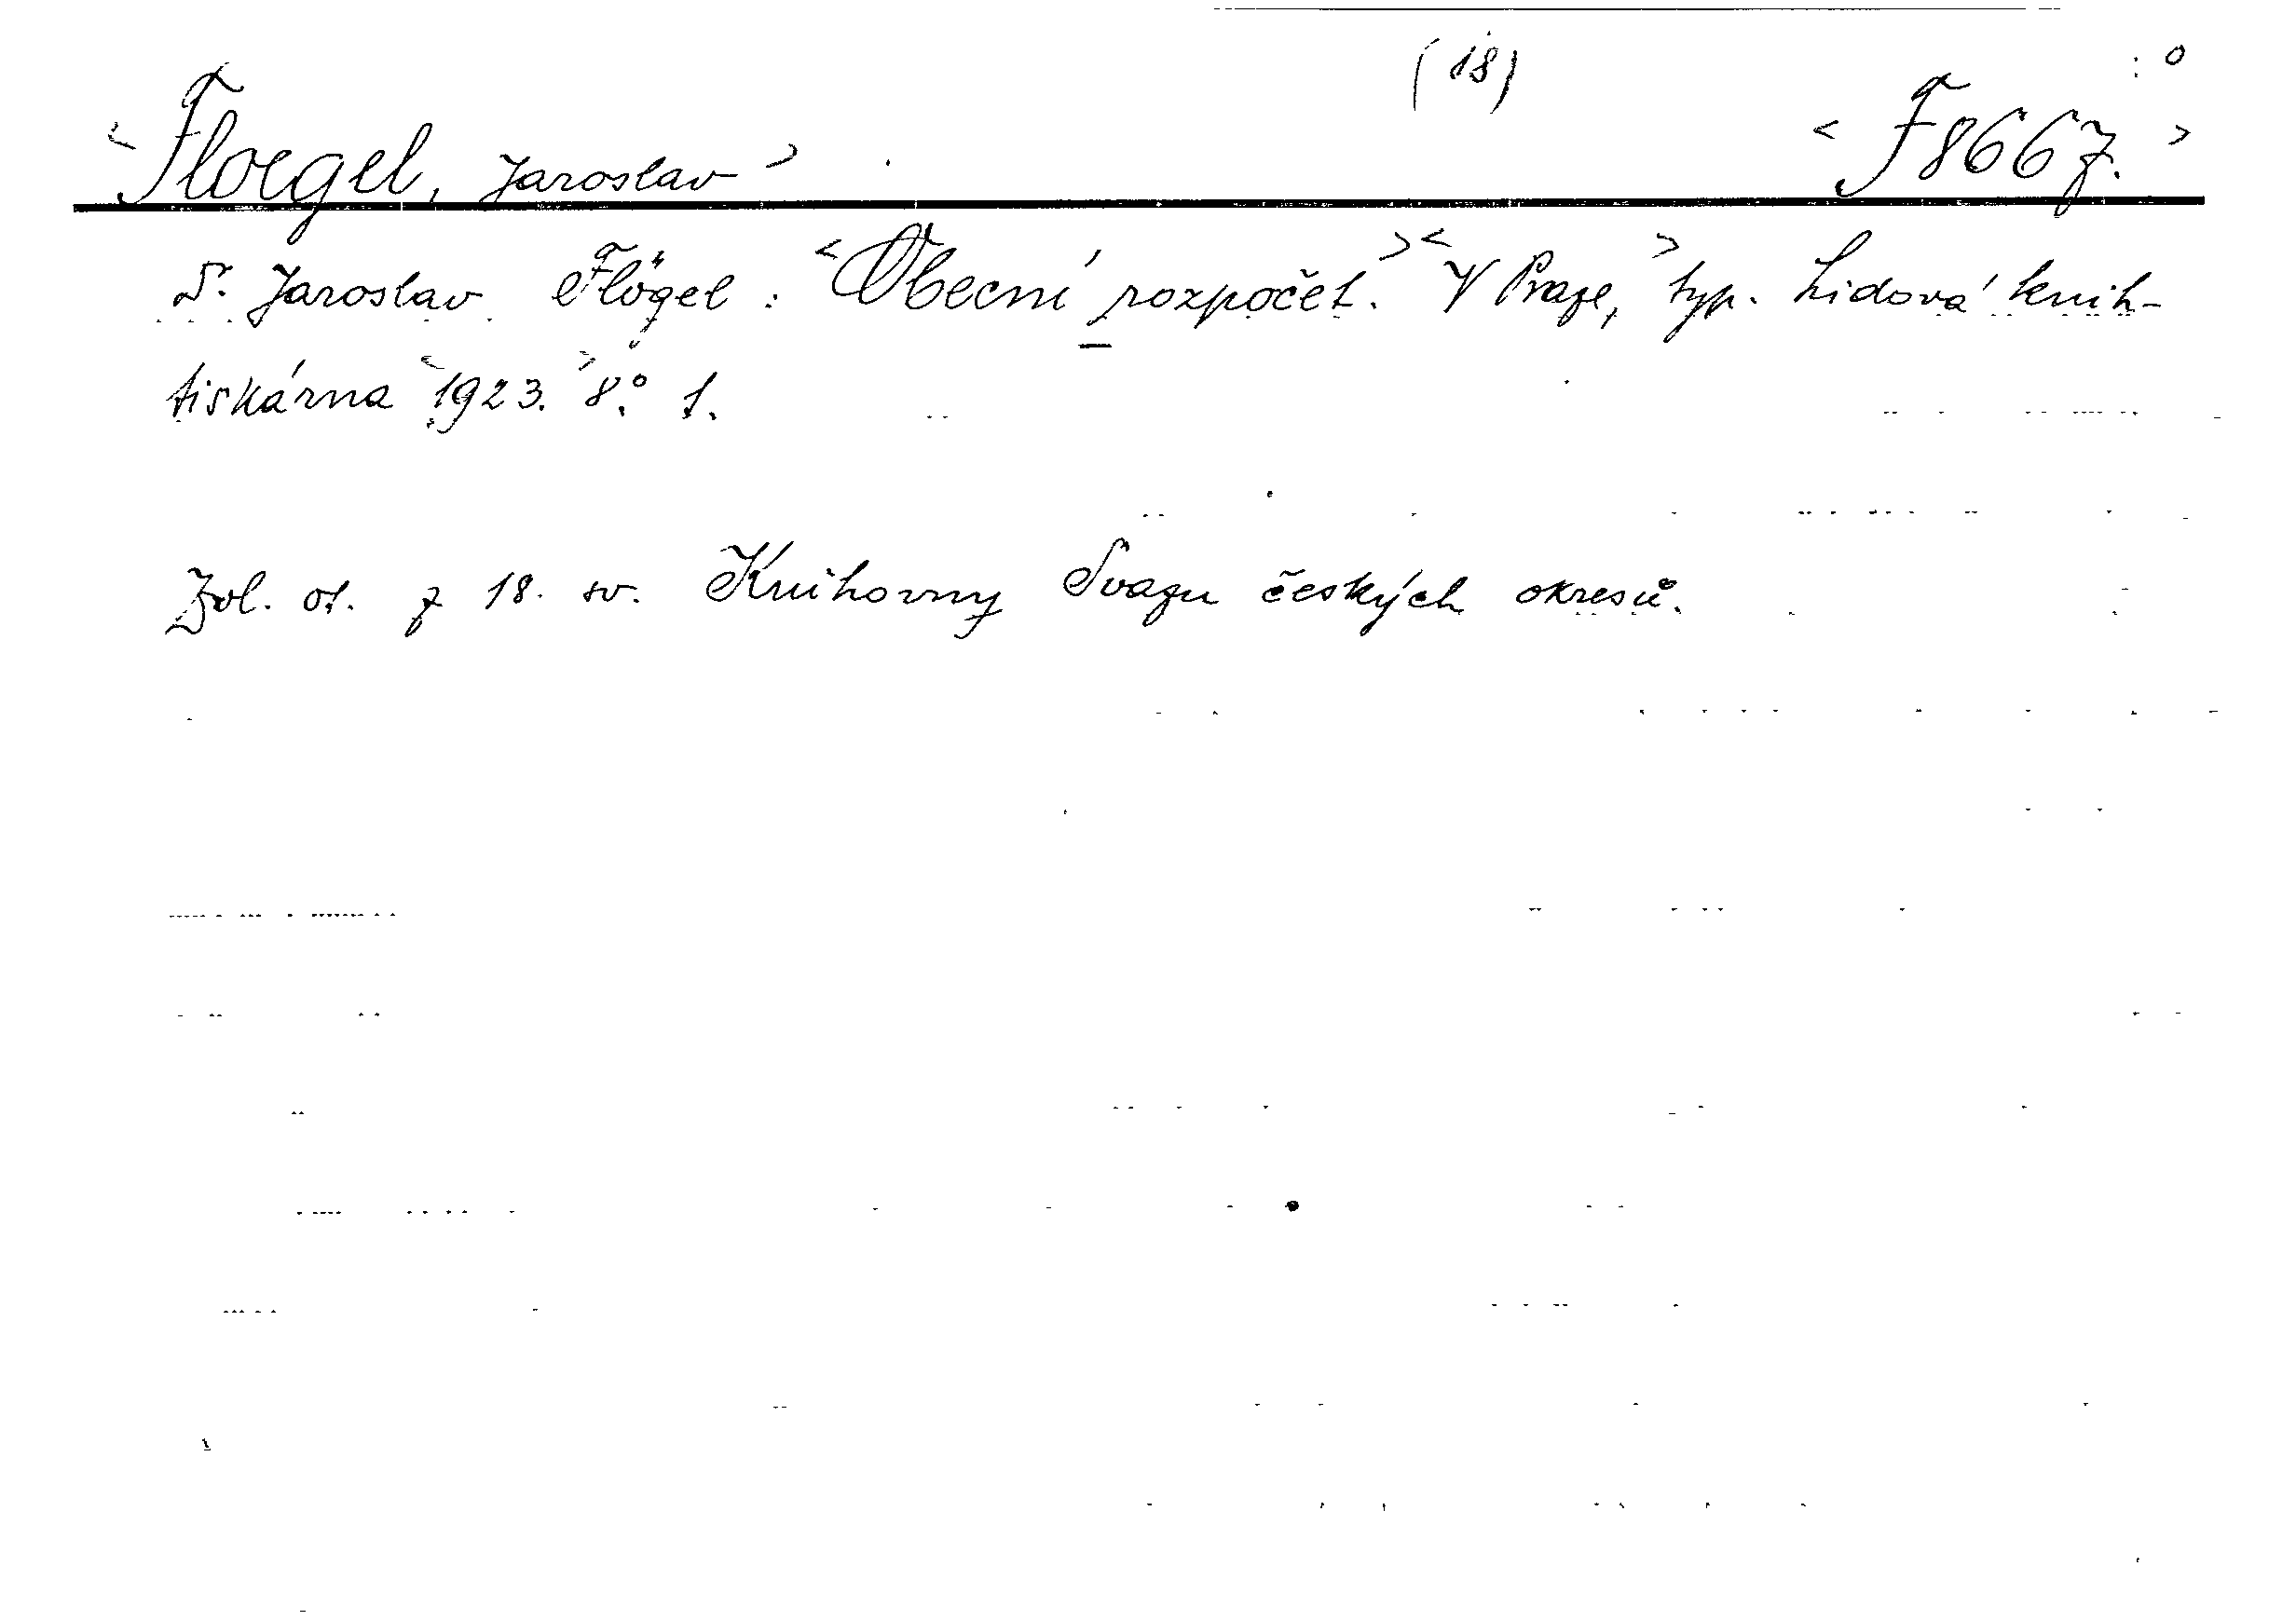 (18)
<Floegel, Jaroslav> <F 8667.>
Dr. Jaroslav Flögel: <Obecní rozpočet.> <V Praze,> typ. Lidová knih-
tiskárna <1923.> 8.° 1.
Zvl. ot. z 18. sv. Knihovny Svazu českých okresů.